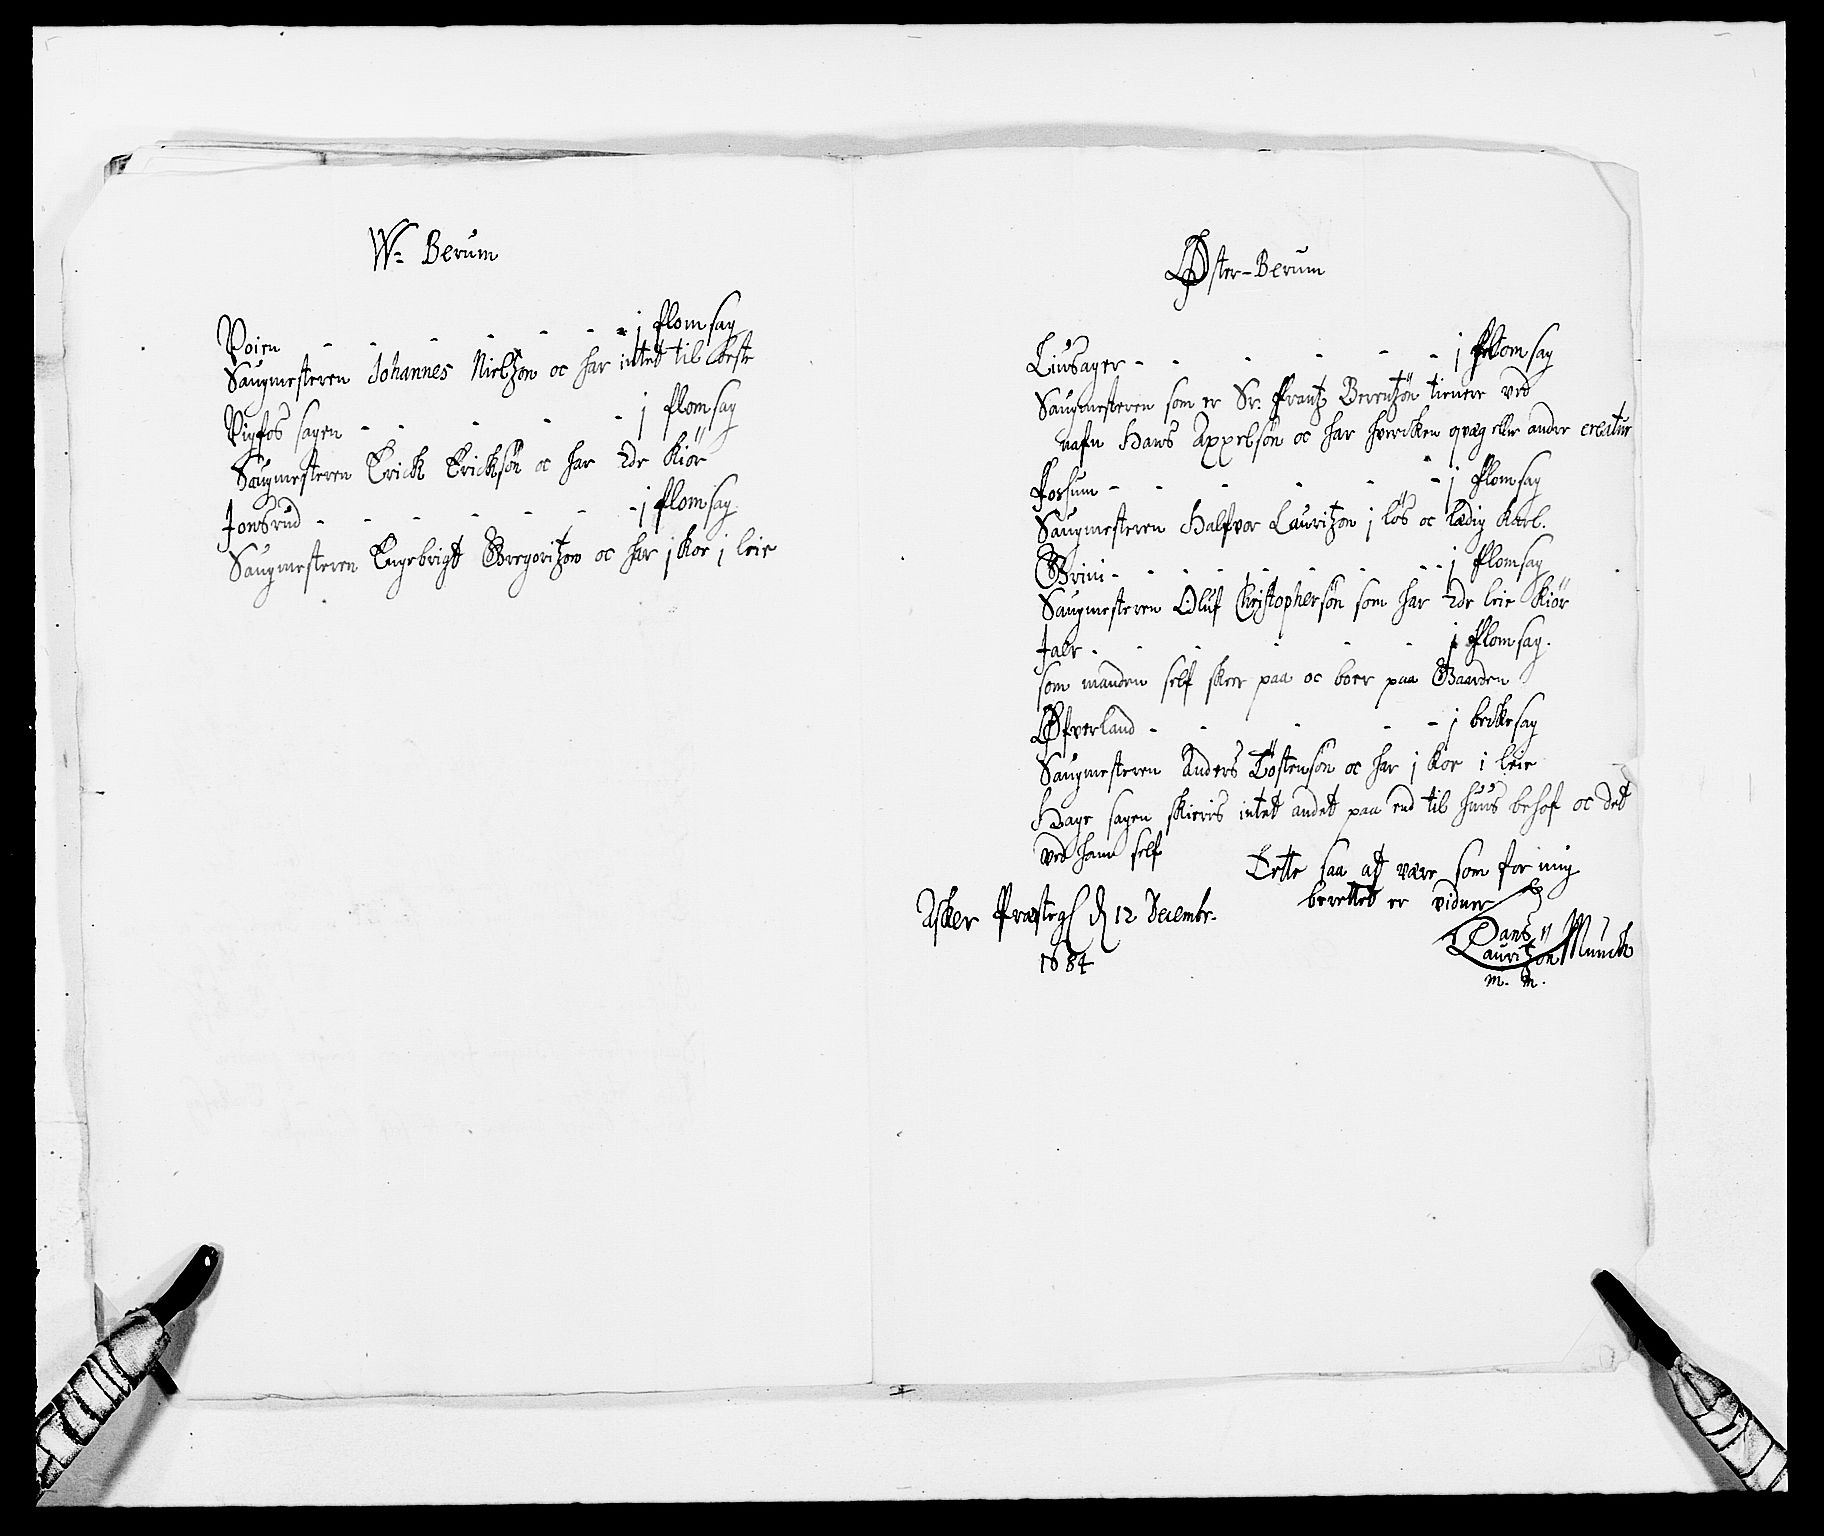 W: Berum
Voien - - - - - - - j flomsag
Saugmesteren Johannes Nielszon oc har intet til beste
Vigfos sagen - - - - - - j flomsag
Saugmesteren Erick Ericksön oc har 2de Kiör
Jonsrud - - - - - - - j flomsag
Saugmesteren Engebrigt Gregoritzon oc har j koe j leie
Øster-Berum
Liusager - - - - - - j flomsag
Saugmesteren som er Sr: Frantz Berentzön tienere ved
nafn Hans Axxelsön oc har hvercken qvæg eller andre creatur
Fossum - - - - - - j flomsag
Saugmesteren Halfvor Lauritzon j lös oc lædig karl.
Grini - - - - - - - - j flomsag
Saugmesteren Oluf Christophersön som har 2de leie Kiör
Jahr - - - - - - j flomsag.
som manden self skier paa oc boer paa Gaarden
Øfverland - - - - - j beckesag
Saugmesteren Anders Töstensön oc har j koe i leie
Hage sagen skieris intet andet paa end til huus behof oc det
ved ham self
Dette saa at være som for mig
berettet er vidner
Asker Præsteg: d 12 Decembr.
1684
Hans
Lauritzön Munch
m. m.